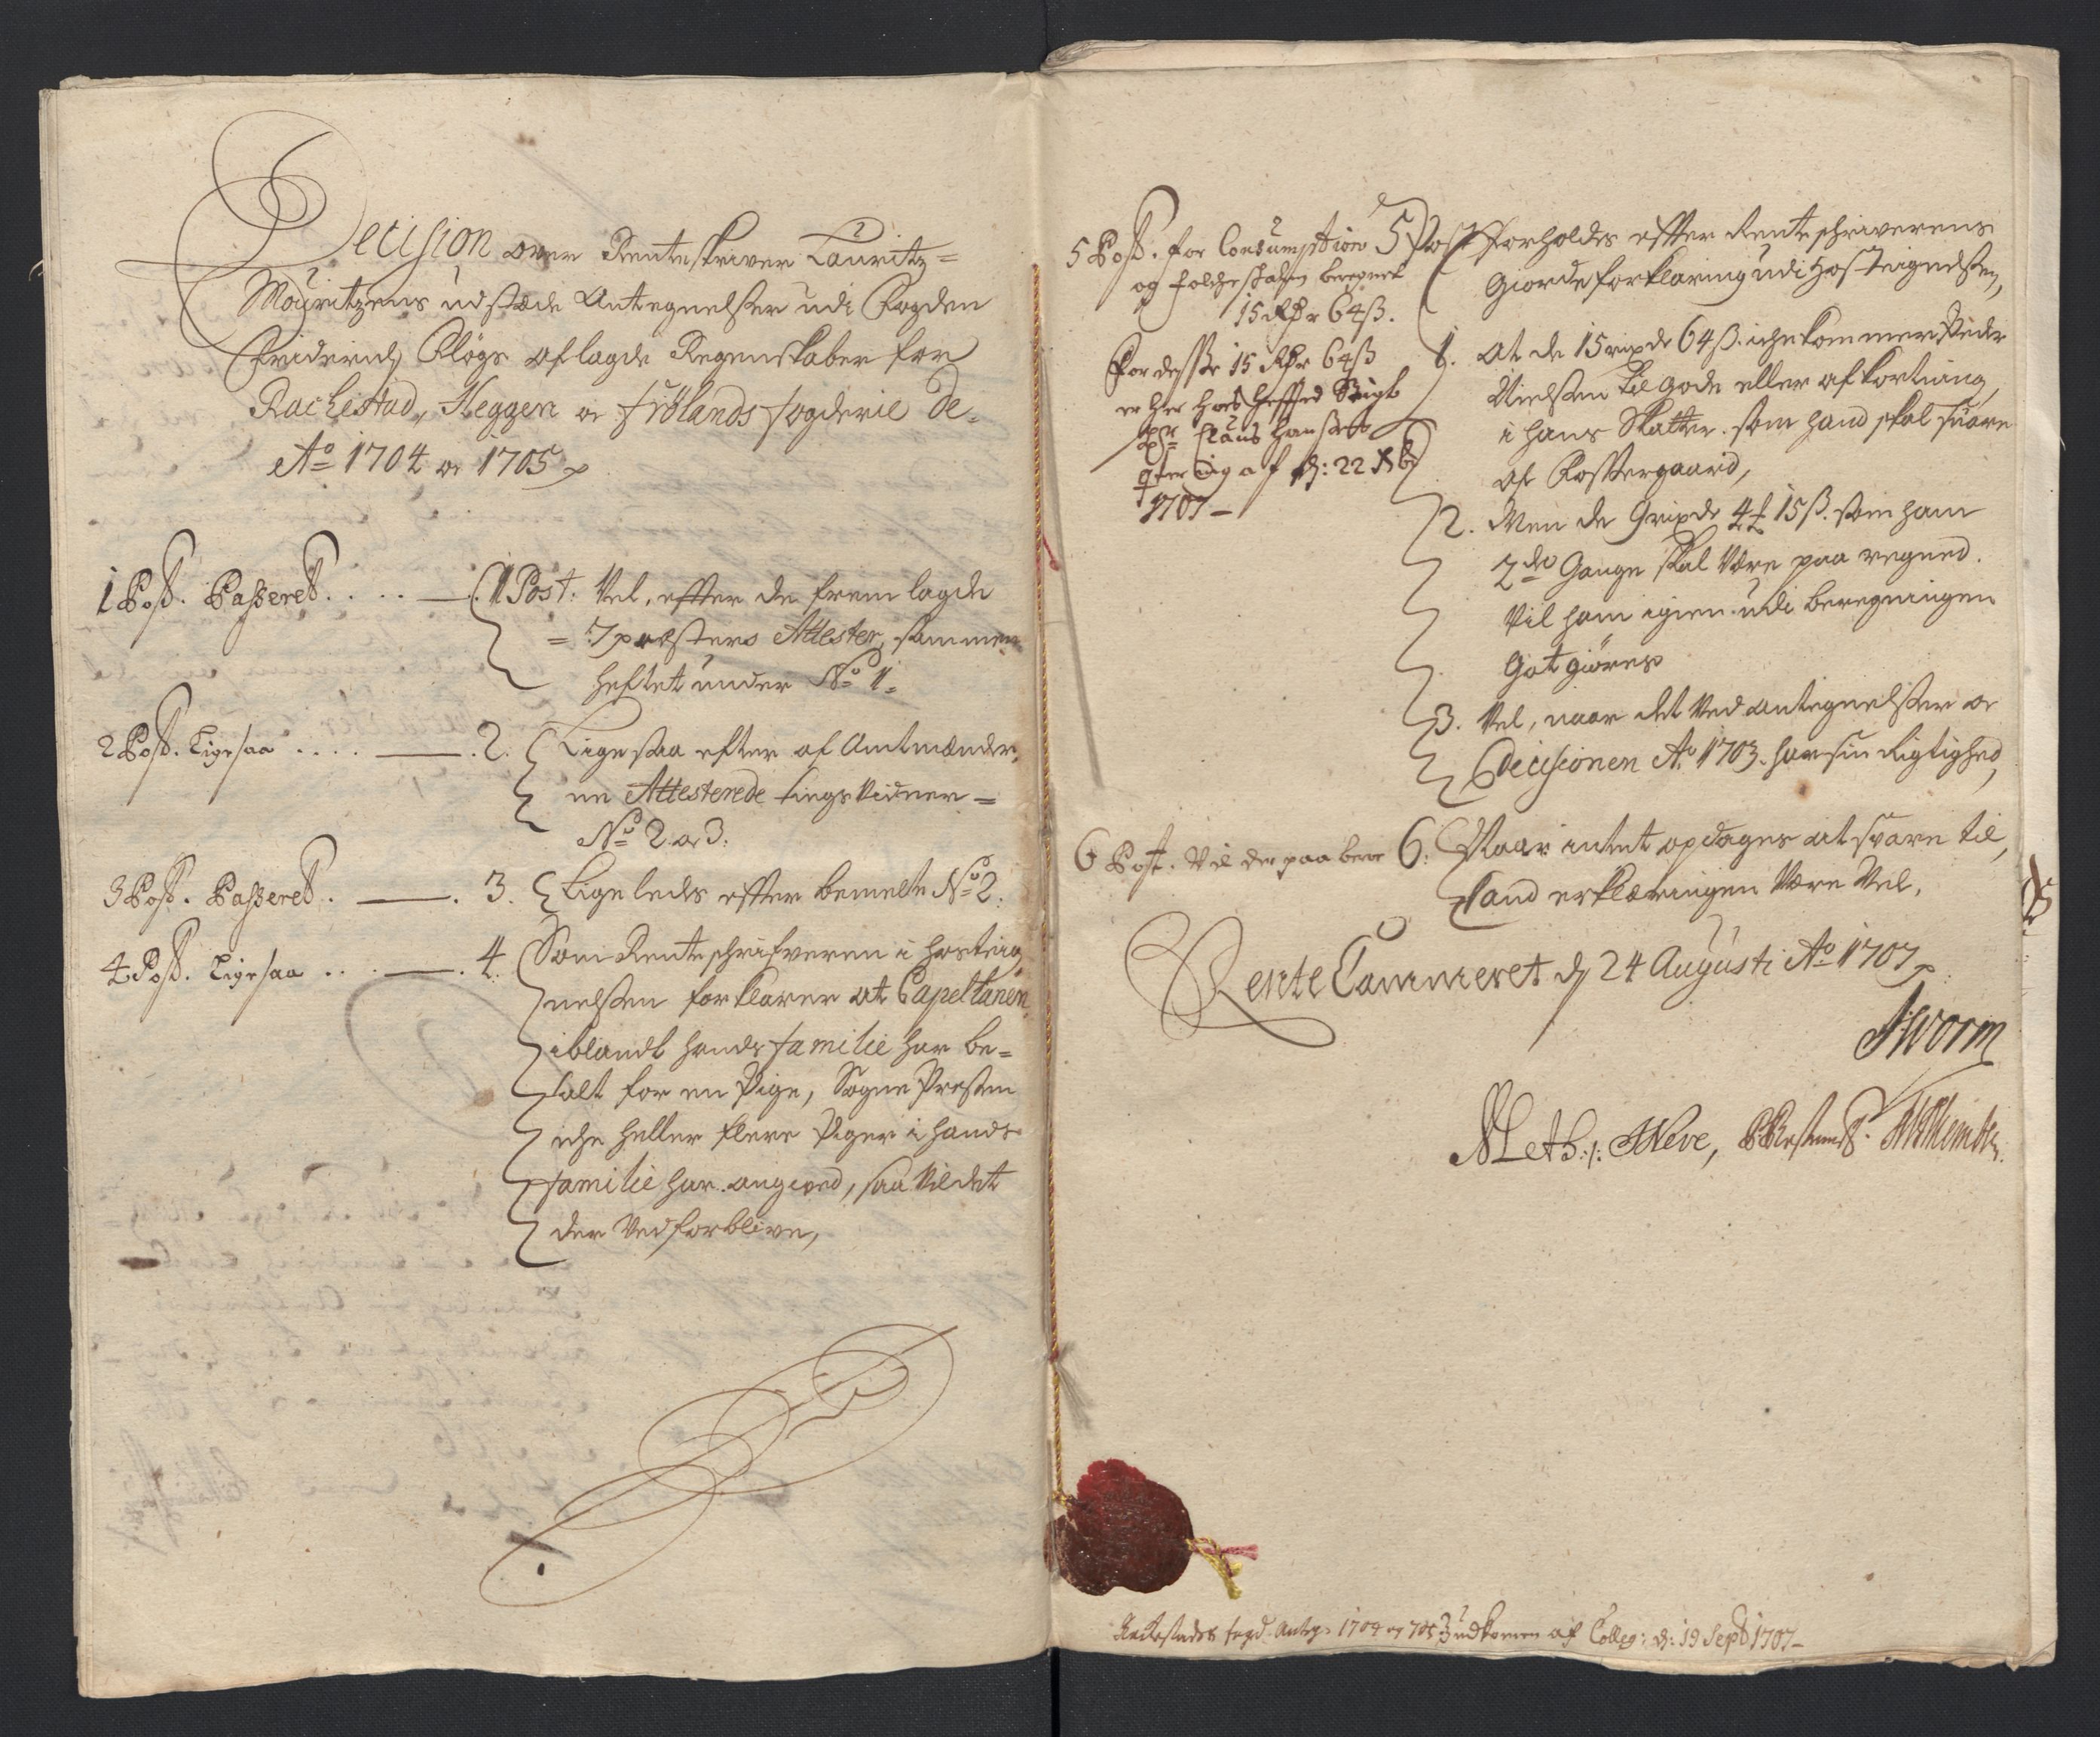 Decision over Renteskriver Lauritz=
Mauritzens udstæde Antegnelsser udi Fogden
Friderich Kløgs aflagde Regenskaber for
Rachestad, Heggen oc Frølands fogderie de
Ao 1704 oc 1705
1 Post. Passeret. . . . — 1 Post: Vel, effter de frem lagde
= 7 præsters Attester, sammen
heftet under No 1.
2 Post. Ligesaa . . . . — . 2. Ligesaa efter af Amtmænder,
ne Attesterede tings Vidner =
No 2 oc 3.
3 Post. Passeret. — . 3. Ligeleds effter bemelte No 2.
4 Post. Ligesaa . . . — . 4. Som Renteschrifveren i hosteig,
nelssen forklarer at Capellanen
iblandt hands familie har be=
talt for en Pige, Sogne Presten
iche heller flere Piger i hands
familie har angived, saa Vil det
der Ved forblive,
5 Post. for Consumption
og Folcheskatten beregnet
15 Rdr 64 ß.
For desse 15 Rdr 64 ß
er her hos heffted
Claus Hansens
qvitering af d: 22
1707 —
5 Post Forholdes effter Renteschriverens
giorde forklaring udi Hosteignelssen,
1. At de 15 rixdr 64 ß. iche kommer Peder
Nielssen til gode eller afkortning,
i hans Skatter. som hand skal svare
af Klostergaard,
2. Men de 9 rixdr 4 £ 15 ß. som ham
2de Gange skal Være paa regned.
Vil ham igien udi beregningen
Got giøres
3. Vel, naar det Ved antegnelsser oc
Decisionen Ao 1703. har sin Rigtighed,
6 Post. Vil der paa bero 6. Naar intet opdages at svare til,
kand erklæringen Være Vel,
Rente Cammeret d 24 Augusti Ao 1707
Worm
Rachestads fogd. Anteg: 1704 og 705 udkommen af Colleg: d: 19 Sept 1707 —